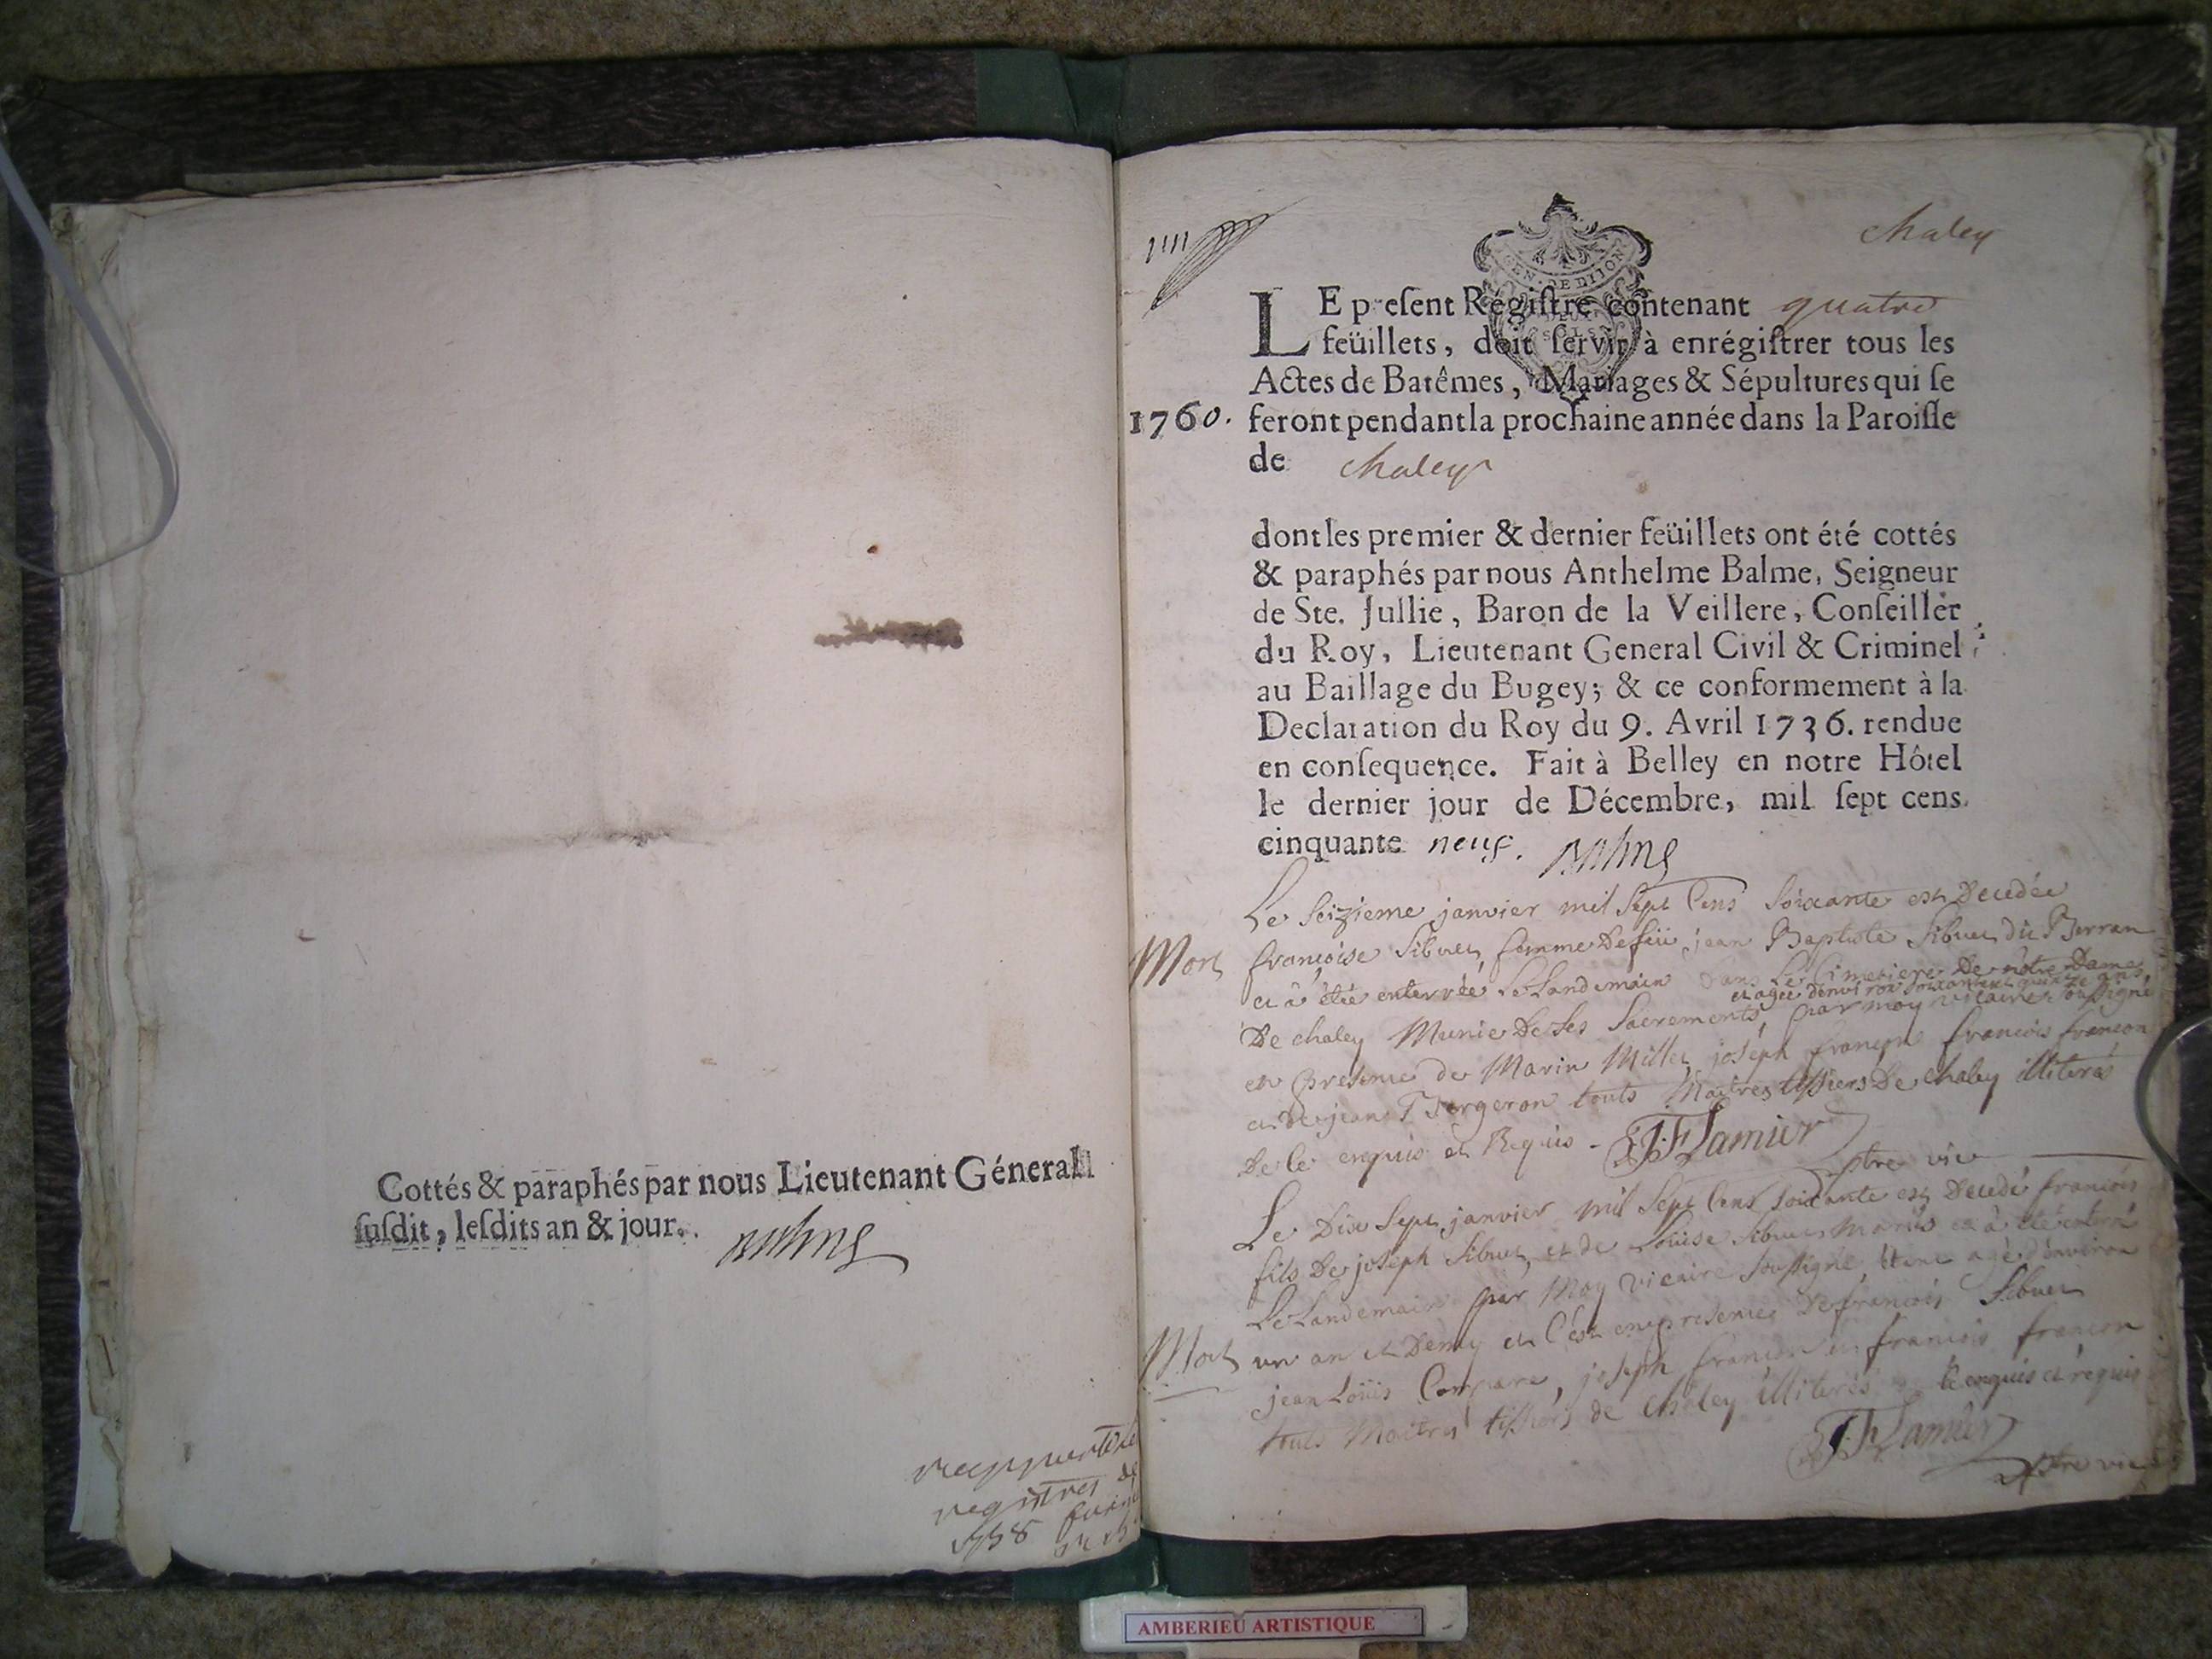 Cottés & paraphés par nous Lieutenant Géneral
susdit, lesdits an & jour.
registres de
1111
chaley
GEN. DE DIJON
DEUX
SOLS
LE present Régistre contenant quatre
feüillets, doit servir à enrégistrer tous les
Actes de Batêmes, Mariages & Sépultures qui se
1760. feront pendant la prochaine année dans la Paroisse
de chaley
dont les premier & dernier feüillets ont été cottés
& paraphés par nous Anthelme Balme, Seigneur
de Ste. Jullie, Baron de la Veillere, Conseiller
du Roy, Lieutenant General Civil & Criminel
au Baillage du Bugey; & ce conformement à la
Declaration du Roy du 9. Avril 1736. rendue
en consequence. Fait à Belley en notre Hôtel
le dernier jour de Décembre, mil sept cens
cinquante neuf. Balme
Le Seizieme janvier mil Sept Cens Soixante est Decedée
Mort francoise Sibuet femme De feü jean Baptiste Sibuet dit
et à étée enterrée Le Landemain dans Le Cimetiere De nôtre Dame
et agée d'environ soixante ans
De chaley Munie De Ses Sacrements, par moy vicaire soussigné
en presence de Marin Millet joseph françon francois françon
et de jean Bergeron touts Maitres tissiers De chaley illiterés
De ce enquis et Requis - Jamier
ptre vic
Le Dix Sept janvier mil Sept Cens Soixante est Decedé francois
fils De joseph Sibuet, et de Loüise Sibuet Mariés et à été enterré
Le Landemain par Moy vicaire soussigné étant agé d'environ
Mort un an et Demy et C'est en presence De francois Sibuet
jean Loüis Compare, joseph françon et francois françon
touts Maitres tissiers de chaley illiterés de ce enquis et requis
Jamier
ptre vic
AMBERIEU ARTISTIQUE